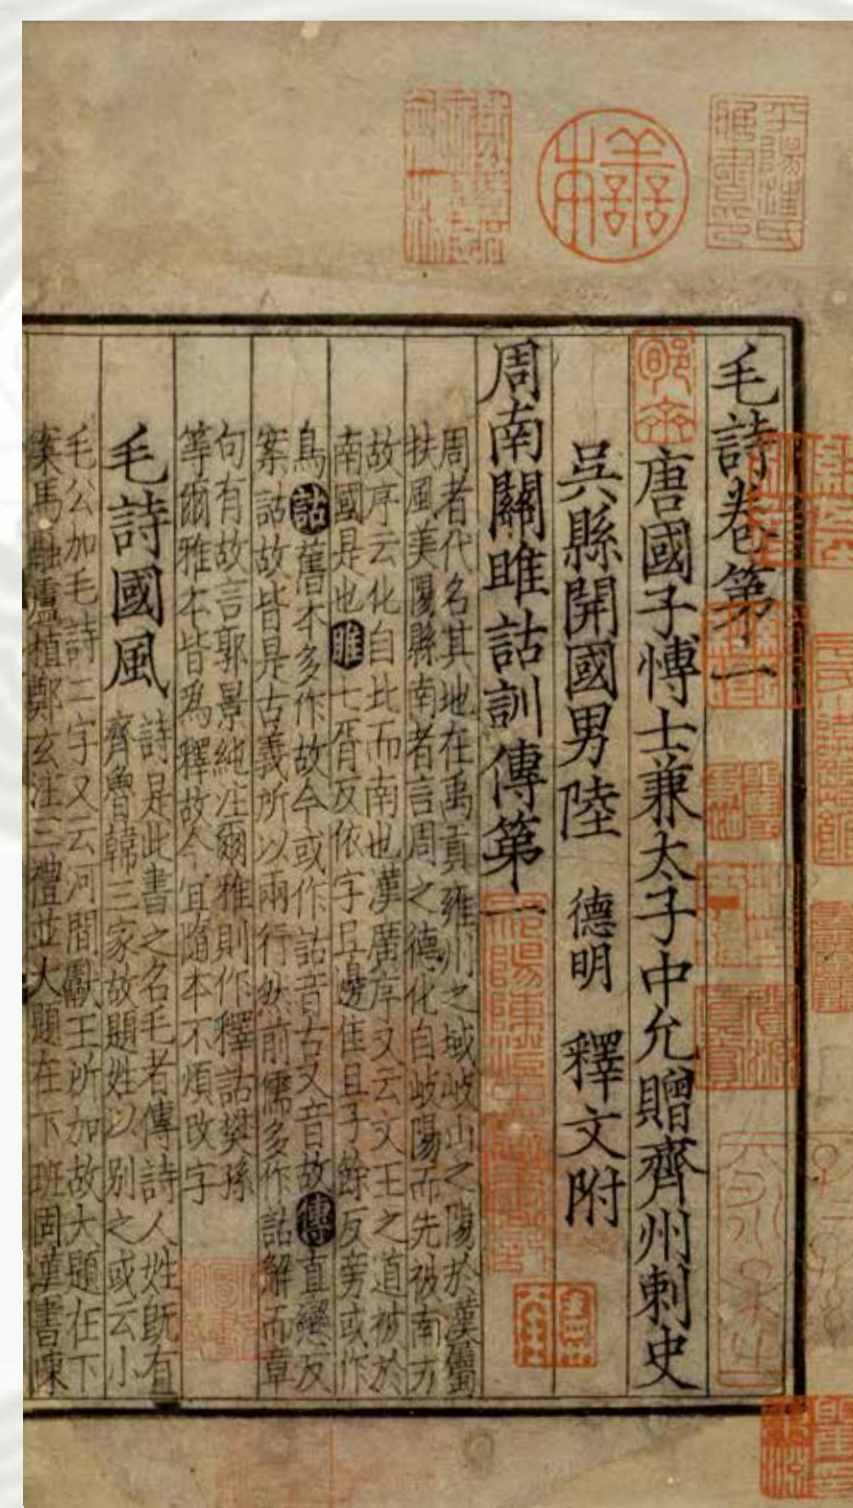 毛詩卷第一
唐國子愽士兼太子中允贈齊州刺史
吳縣開國男陸 德明 釋文附
周南關雎詁訓傳第一
周者代名其地在禹貢雍州之域岐山之陽於漢屬
扶風美陽縣南者言周之德化自岐陽而先被南方
故序云化自北而南也漢廣序又云文王之道被於
南國是也雎七胥反依字且邊隹且子餘反旁或作
鳥詁舊本多作故今或作詁音古又音故傳直戀反
案詁故皆是古義所以兩行然前儒多作詁解而章
句有故言郭景純注爾雅則作釋詁樊孫
等爾雅本皆爲釋故今宜隨本不煩改字
毛詩國風
詩是此書之名毛者傳詩人姓既有
齊魯韓三家故題姓以別之或云小
毛公加毛詩二字又云河間獻王所加故大題在下
案馬融盧植鄭玄注三禮並大題在下班固漢書陳
平陽汪氏藏書印
善本